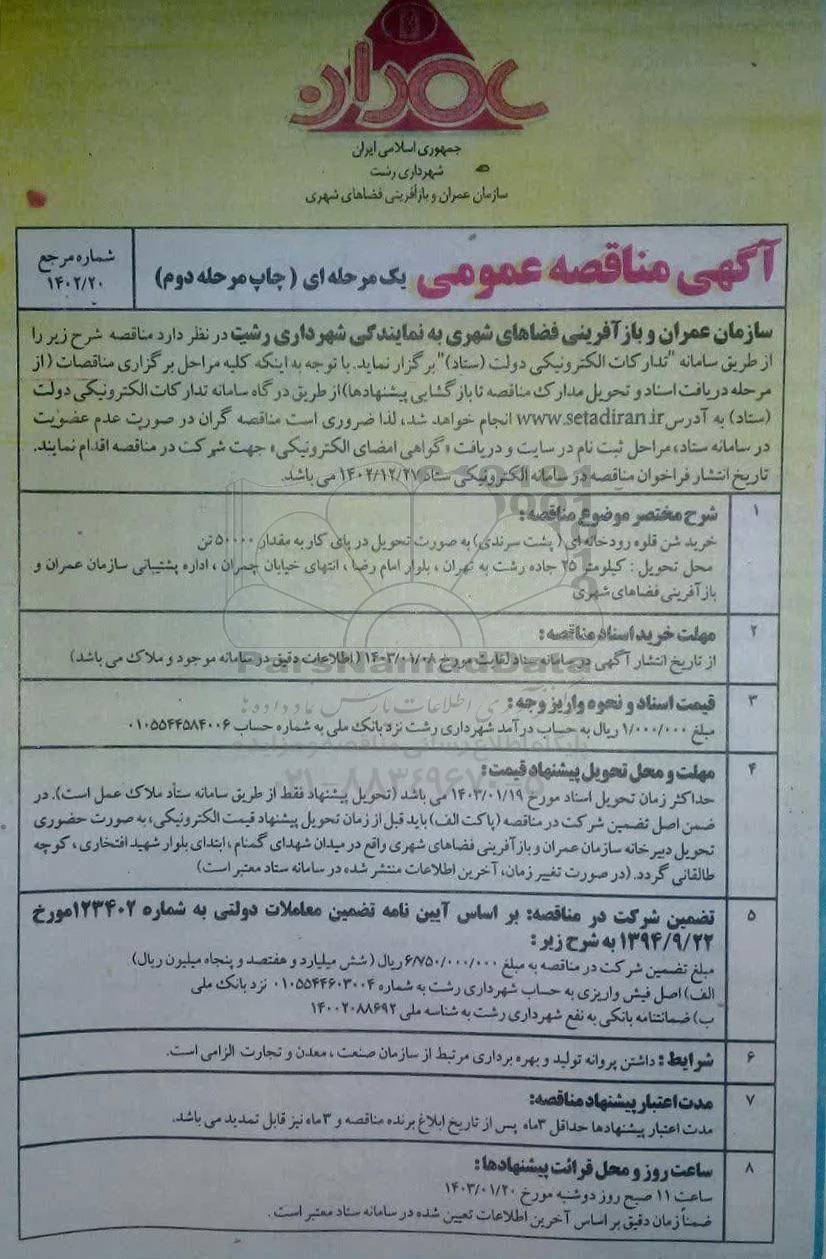 عمران
جمهوری اسلامی ایران
شهرداری رشت
سازمان عمران و بازآفرینی فضاهای شهری
آگهی مناقصه عمومی یک مرحله ای (چاپ مرحله دوم)
شماره مرجع
۱۴۰۲/۲۰
سازمان عمران و بازآفرینی فضاهای شهری به نمایندگی شهرداری رشت در نظر دارد مناقصه شرح زیر را
از طریق سامانه "تدارکات الکترونیکی دولت (ستاد)" برگزار نماید. با توجه به اینکه کلیه مراحل برگزاری مناقصات (از
مرحله دریافت اسناد و تحویل مدارک مناقصه تا بازگشایی پیشنهادها) از طریق درگاه سامانه تدارکات الکترونیکی دولت
(ستاد) به آدرس www.setadiran.ir انجام خواهد شد، لذا ضروری است مناقصه گران در صورت عدم عضویت
در سامانه ستاد، مراحل ثبت نام در سایت و دریافت «گواهی امضای الکترونیکی» جهت شرکت در مناقصه اقدام نمایند.
تاریخ انتشار فراخوان مناقصه در سامانه الکترونیکی ستاد ۱۴۰۲/۱۲/۲۷ می باشد.
۱
شرح مختصر موضوع مناقصه:
خرید شن قلوه رودخانه ای (پشت سرندی) به صورت تحویل در پای کار به مقدار ۵۰۰۰۰ تن
محل تحویل : کیلومتر ۲۵ جاده رشت به تهران ، بلوار امام رضا ، انتهای خیابان چمران ، اداره پشتیبانی سازمان عمران و
بازآفرینی فضاهای شهری
۲
مهلت خرید اسناد مناقصه:
از تاریخ انتشار آگهی در سامانه ستاد لغایت مورخ ۱۴۰۳/۰۱/۰۸ (اطلاعات دقیق در سامانه موجود و ملاک می باشد)
ParsNamadData
۳
قیمت اسناد و نحوه واریز وجه:
مبلغ ۱/۰۰۰/۰۰۰ ریال به حساب درآمد شهرداری رشت نزد بانک ملی به شماره حساب ۰۱۰۵۵۴۴۵۸۴۰۰۶
پایگاه اطلاع رسانی مناقصه و مزایده
۴
مهلت و محل تحویل پیشنهاد قیمت:
۰۲۱-۸۸۳۴۹۶۷۰-۵
حداکثر زمان تحویل اسناد مورخ ۱۴۰۳/۰۱/۱۹ می باشد (تحویل پیشنهاد فقط از طریق سامانه ستاد ملاک عمل است). در
ضمن اصل تضمین شرکت در مناقصه (پاکت الف) باید قبل از زمان تحویل پیشنهاد قیمت الکترونیکی، به صورت حضوری
تحویل دبیرخانه سازمان عمران و بازآفرینی فضاهای شهری واقع در میدان شهدای گمنام ، ابتدای بلوار شهید افتخاری ، کوچه
طالقانی گردد. (در صورت تغییر زمان، آخرین اطلاعات منتشر شده در سامانه ستاد معتبر است)
۵
تضمین شرکت در مناقصه: بر اساس آیین نامه تضمین معاملات دولتی به شماره ۱۲۳۴۰۲مورخ
۱۳۹۴/۹/۲۲ به شرح زیر :
مبلغ تضمین شرکت در مناقصه به مبلغ ۶/۷۵۰/۰۰۰/۰۰۰ریال (شش میلیارد و هفتصد و پنجاه میلیون ریال)
الف) اصل فیش واریزی به حساب شهرداری رشت به شماره ۰۱۰۵۵۴۴۶۰۳۰۰۴ نزد بانک ملی
ب) ضمانتنامه بانکی به نفع شهرداری رشت به شناسه ملی ۱۴۰۰۲۰۸۸۶۹۲
۶
شرایط : داشتن پروانه تولید و بهره برداری مرتبط از سازمان صنعت ، معدن و تجارت الزامی است.
۷
مدت اعتبار پیشنهاد مناقصه:
مدت اعتبار پیشنهادها حداقل ۳ماه پس از تاریخ ابلاغ برنده مناقصه و ۳ ماه نیز قابل تمدید می باشد.
۸
ساعت روز و محل قرائت پیشنهادها:
ساعت ۱۱ صبح روز دوشنبه مورخ ۱۴۰۳/۰۱/۲۰
ضمناً زمان دقیق بر اساس آخرین اطلاعات تعیین شده در سامانه ستاد معتبر است .